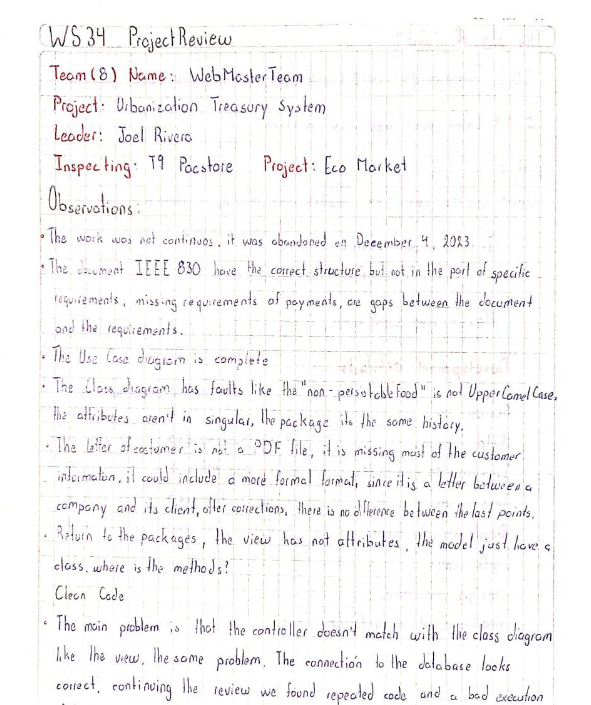 WS34 Project Review
Team (8) Name: WebMasterTeam
Project: Urbanization Treasury System
Leader: Joel Rivera
Inspecting: T9 Pacstore Project: Eco Market
Observations:
• The work was not continuos, it was abandoned on December 4, 2023
• The document IEEE 830 have the correct structure but not in the part of specific
requirements, missing requirements of payments, are gaps between the document
and the requirements.
• The Use Case diagram is complete
• The Class diagram has faults like the "non-persutableFood" is not UpperCamelCase,
the attributes aren't in singular, the package its the same history.
• The letter of costumer is not a PDF file, it is missing most of the customer
information, it could include a more formal format, since it is a letter between a
company and its client, after corrections, there is no difference between the last points.
• Return to the packages, the view has not attributes, the model just have a
class. where is the methods?
Clean Code
• The main problem is that the controller doesn't match with the class diagram
like the view, the same problem. The connection to the database looks
correct, continuing the review we found repeated code and a bad execution